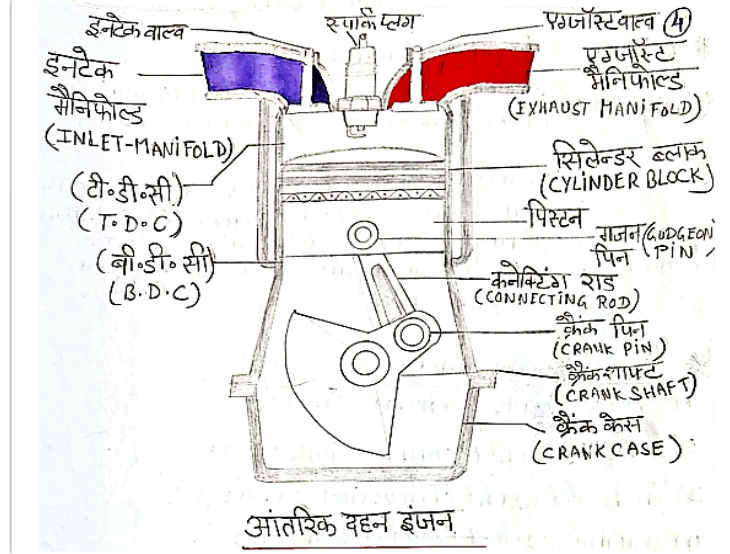 इनटेक वाल्व
स्पार्क प्लग
एग्जॉस्ट वाल्व ④
इनटेक
मैनिफोल्ड
(INLET-MANIFOLD)
एग्जॉस्ट
मैनिफोल्ड
(EXHAUST MANIFOLD)
(टी॰डी॰सी)
(T.D.C)
सिलेन्डर ब्लाक
(CYLINDER BLOCK)
पिस्टन
(बी॰डी॰सी)
(B.D.C)
गजन (GUDGEON
पिन PIN)
कनेक्टिंग राड
(CONNECTING ROD)
क्रैंक पिन
(CRANK PIN)
क्रैंकशाफ्ट
(CRANKSHAFT)
क्रैंक केस
(CRANKCASE)
आंतरिक दहन इंजन